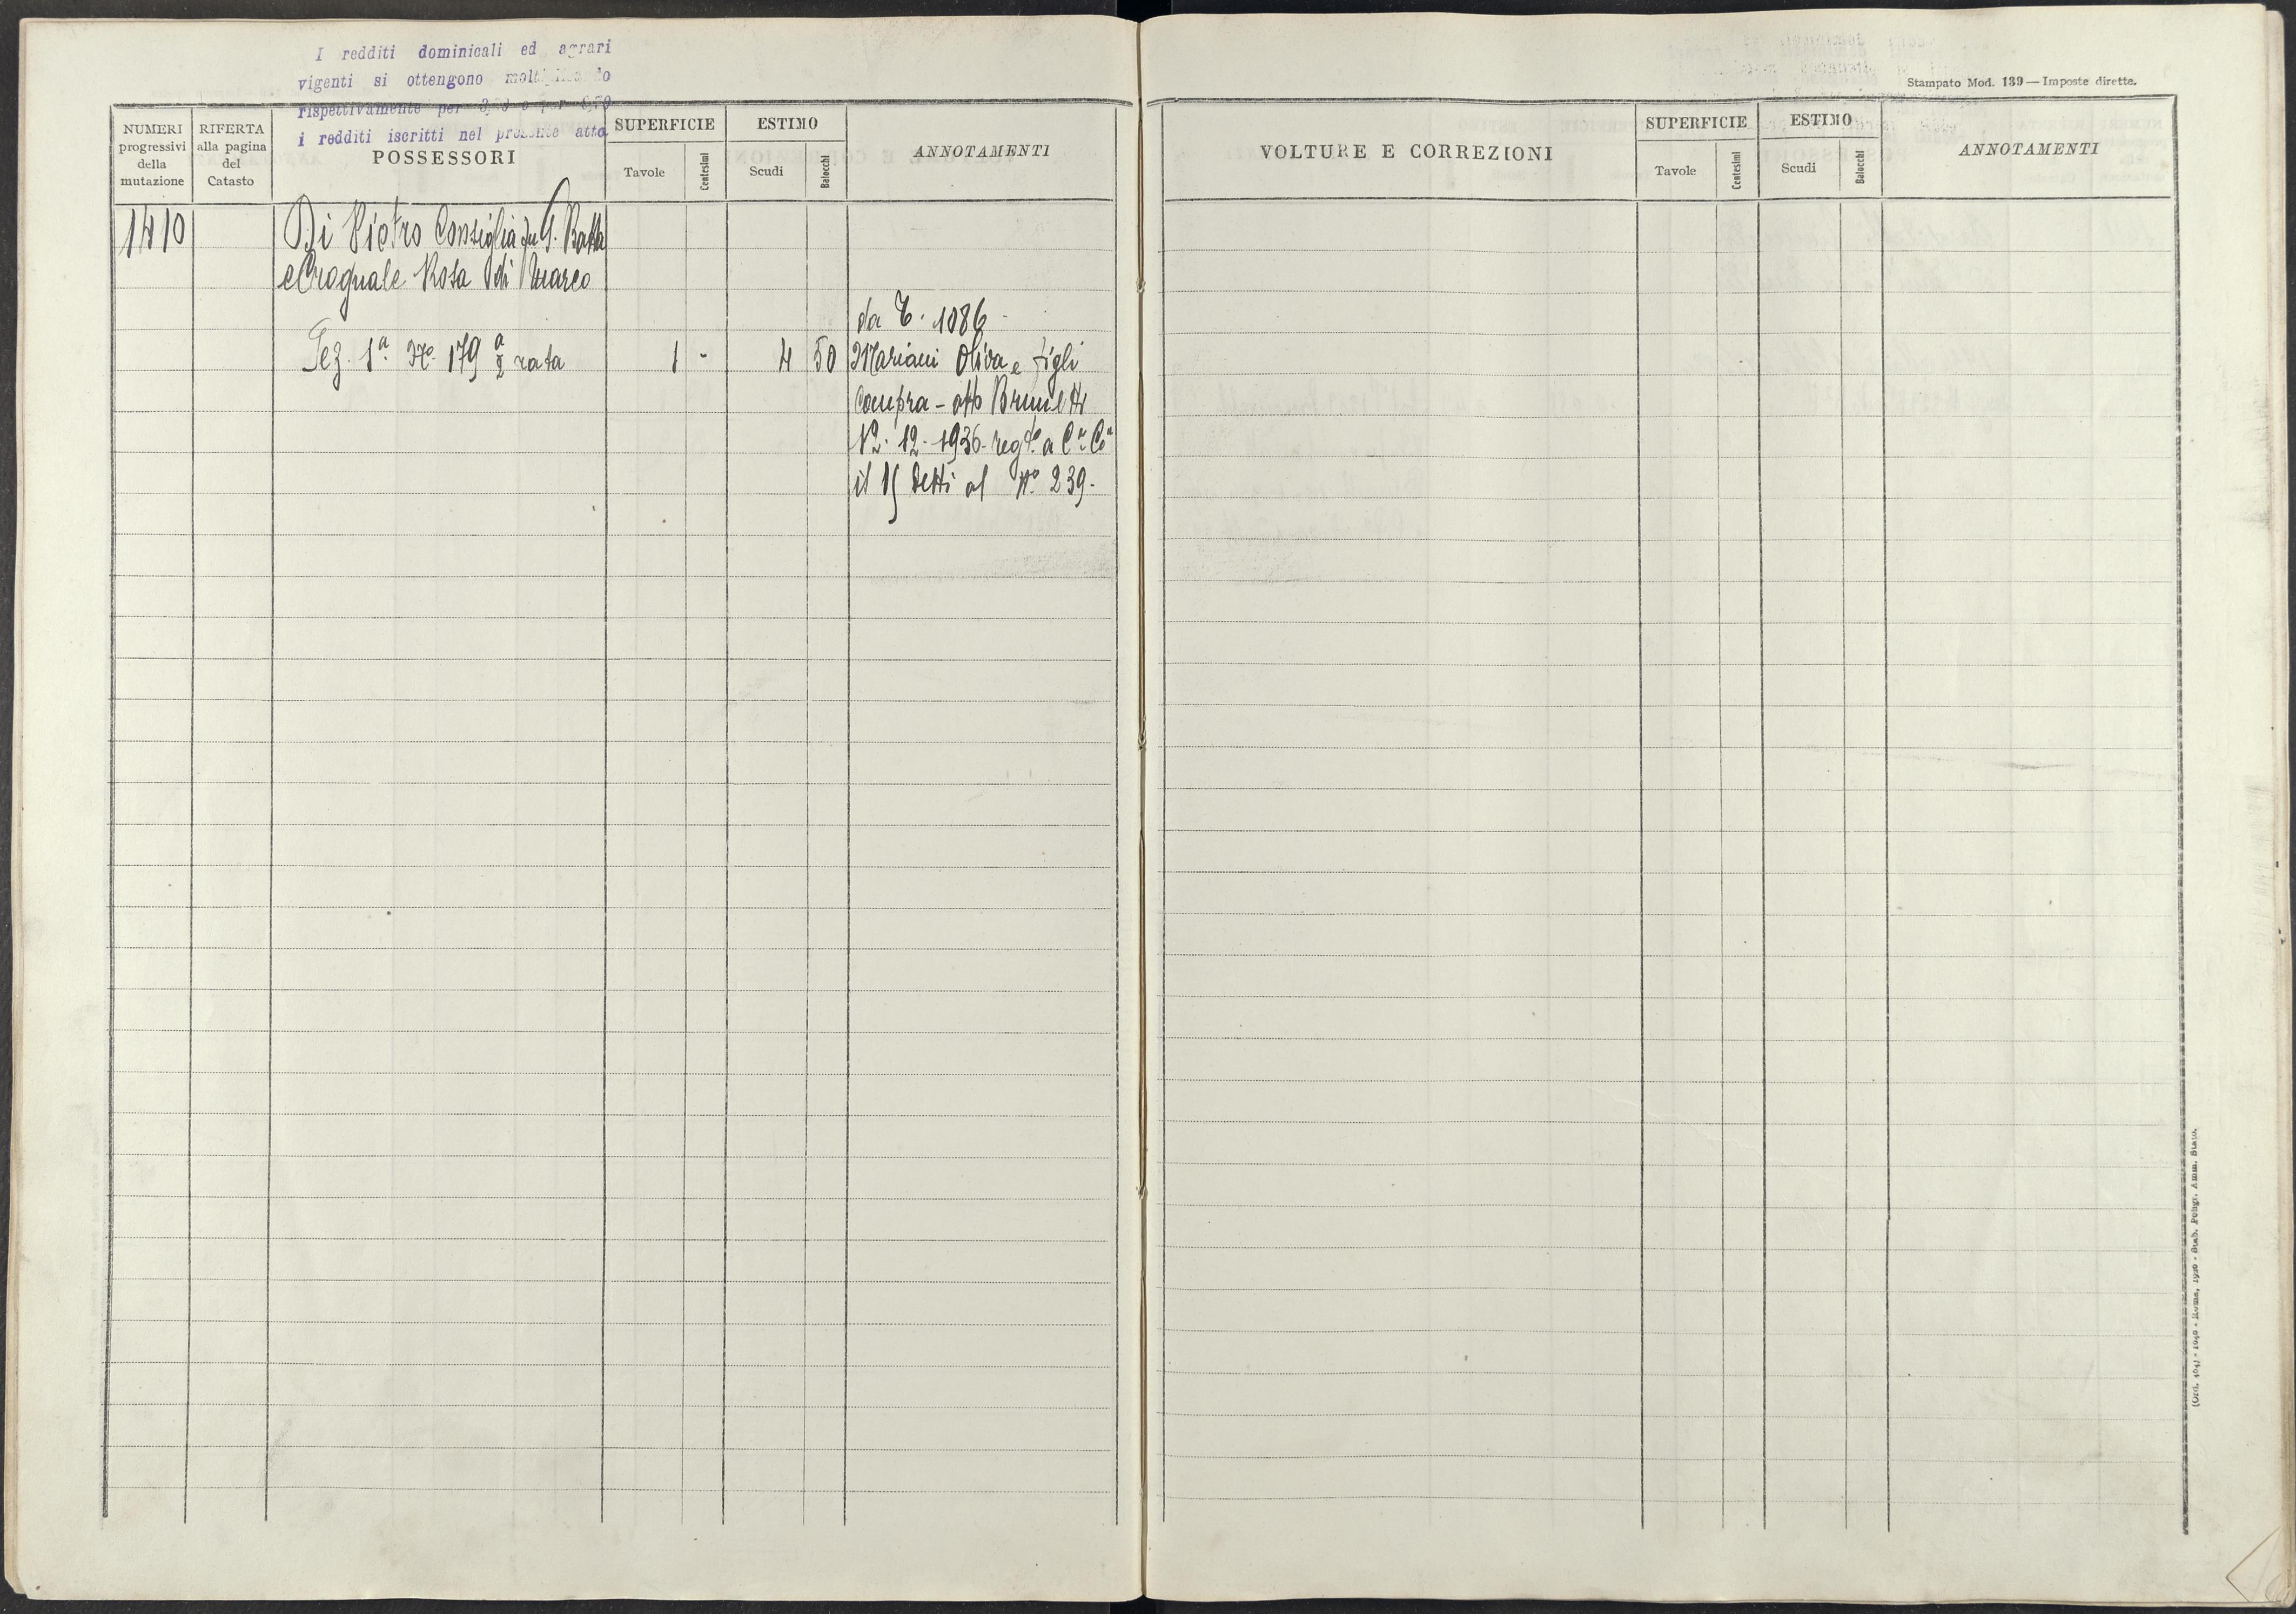 I redditi dominicali ed agrari
vigenti si ottengono
rispettivamente per
i redditi iscritti nel presente atto
Stampato Mod. 139 — Imposte dirette.
NUMERI progressivi della mutazione
RIFERTA alla pagina del Catasto
POSSESSORI
SUPERFICIE
Tavole
Centesimi
ESTIMO
Scudi
Baiocchi
ANNOTAMENTI
VOLTURE E CORREZIONI
SUPERFICIE
Tavole
Centesimi
ESTIMO
Scudi
Baiocchi
ANNOTAMENTI
1410
Di Pietro Consiglia fu G. Batta
e Rosa di Marco
da C. 1086 -
Sez. 1ª Nº 179 rata 1 - 4 50 Mariani Oliva e figli
Compra - atto Brunetti
12. 12. 1936. regto a
il 15 detti al Nº 239.
Roma, - Stab. Poligr. Amm. Stato.